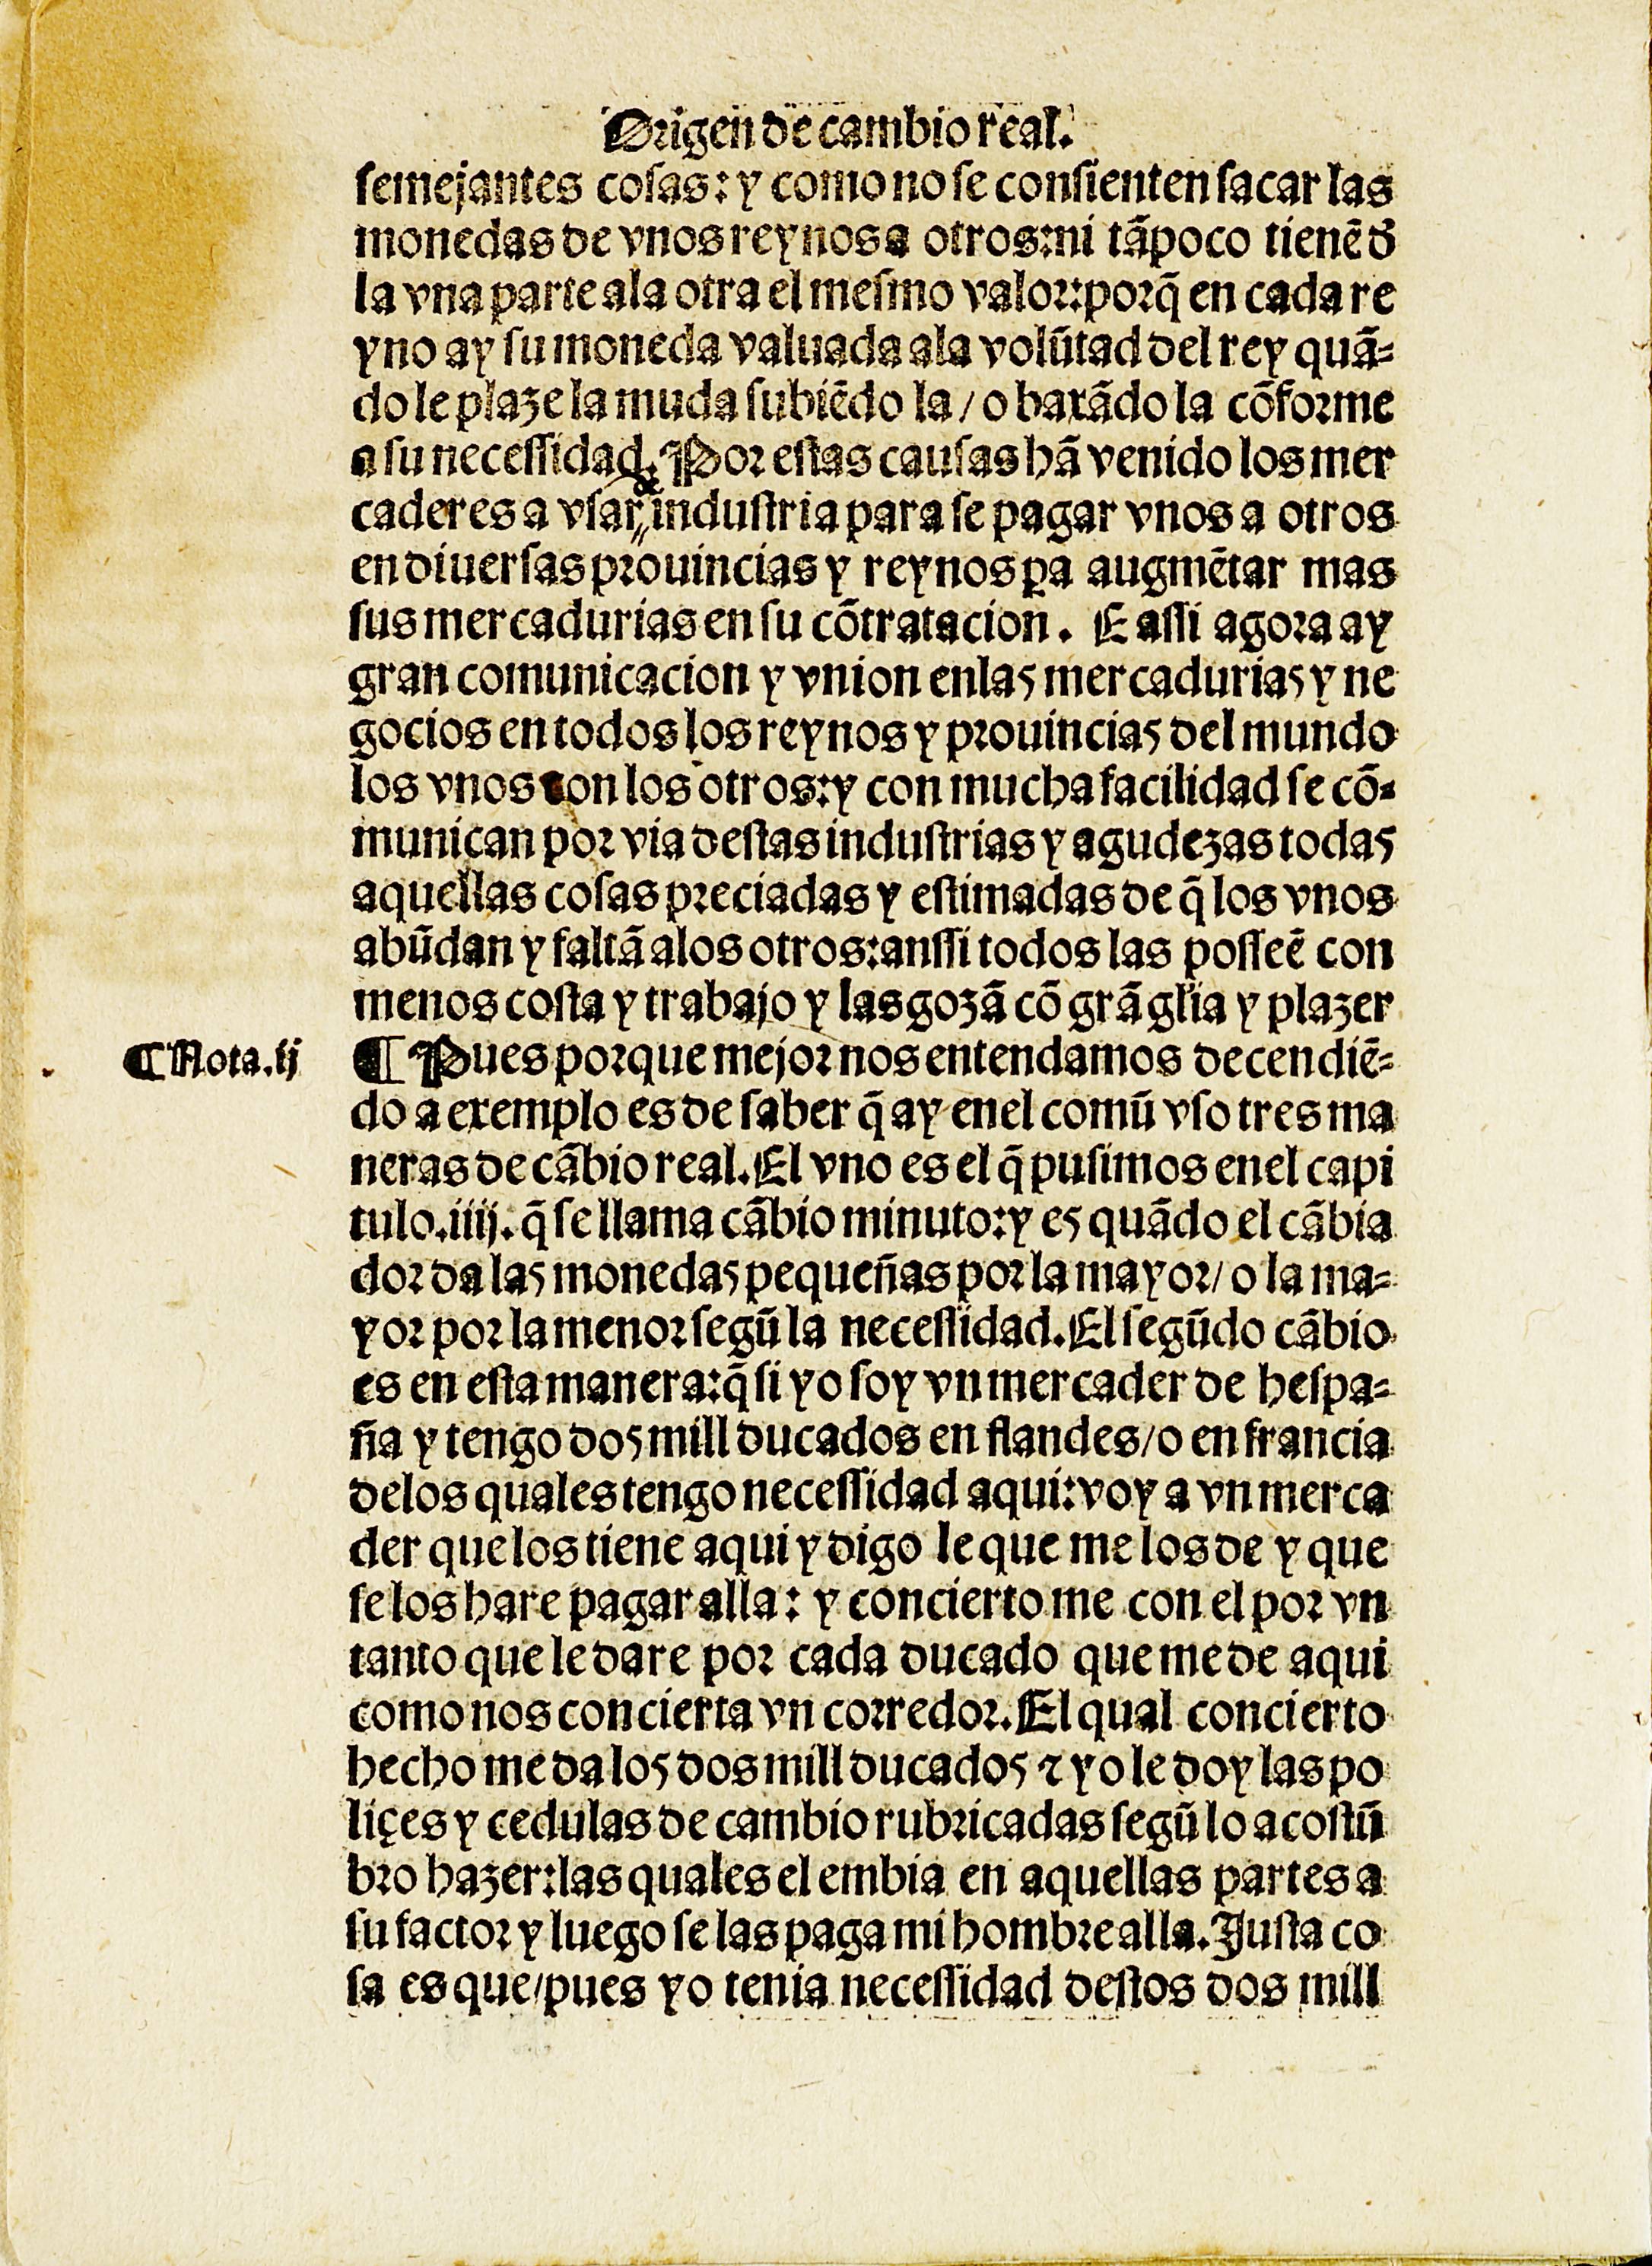 Origen de cambio real.
semejantes cosas: y como no se consienten sacar las
monedas de vnos reynos a otros: ni tãpoco tienẽ đ
la vna parte ala otra el mesmo valor: porq̃ en cada re
yno ay su moneda valuada ala volũtad del rey quã-
do le plaze la muda subiẽdo la / o baxãdo la cõforme
a su necessidad. Por estas causas hã venido los mer
caderes a vsar de industria para se pagar vnos a otros
en diuersas prouincias y reynos ꝑa augmẽtar mas
sus mercadurias en su cõtratacion. E assi agora ay
gran comunicacion y vnion enlas mercadurias y ne
gocios en todos los reynos y prouincias del mundo
los vnos con los otros: y con mucha facilidad se cõ-
munican por via destas industrias y agudezas todas
aquellas cosas preciadas y estimadas de q̃ los vnos
abũdan y faltã alos otros: anssi todos las posseẽ con
menos costa y trabajo y las gozã cõ grã gl̃ia y plazer
¶ Nota. ij
¶ Pues porque mejor nos entendamos decendiẽ-
do a exemplo es de saber q̃ ay enel comũ vso tres ma
neras de cãbio real. El vno es el q̃ pusimos enel capi
tulo. iiij. q̃ se llama cãbio minuto: y es quãdo el cãbia
dor da las monedas pequeñas por la mayor / o la ma-
yor por la menor segũ la necessidad. El segũdo cãbio
es en esta manera: q̃ si yo soy vn mercader de hespa-
ña y tengo dos mill ducados en flandes / o en francia
delos quales tengo necessidad aqui: voy a vn merca
der que los tiene aqui y digo le que me los de y que
se los hare pagar alla: y concierto me con el por vn
tanto que le dare por cada ducado que me de aqui
como nos concierta vn corredor. El qual concierto
hecho me da los dos mill ducados ⁊ yo le doy las po
liçes y cedulas de cambio rubricadas segũ lo acostũ
bro hazer: las quales el embia en aquellas partes a
su factor y luego se las paga mi hombre alla. Justa co
sa es que / pues yo tenia necessidad destos dos mill